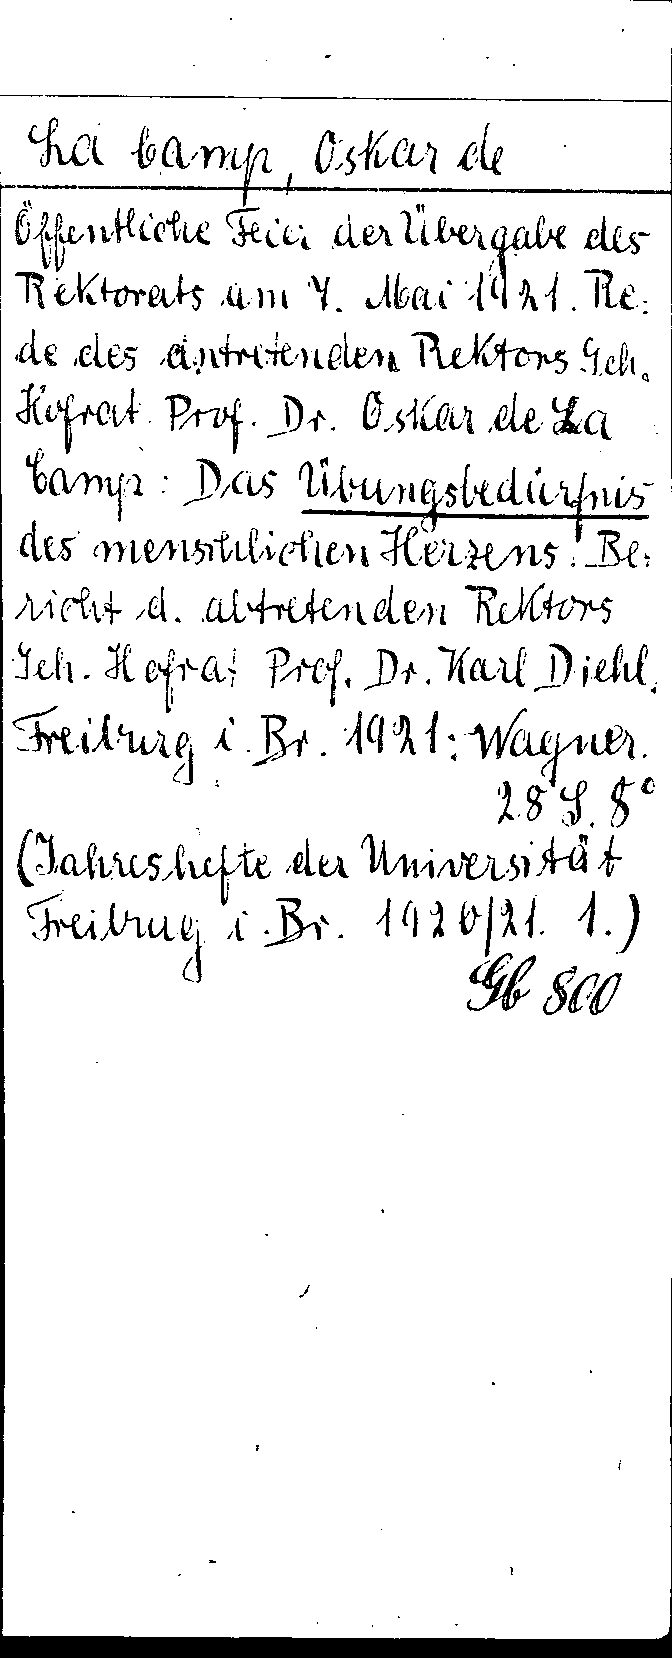 La Camp, Oskar de
Öffentliche Feier der Übergabe des
Rektorats am 7. Mai 1921. Re-
de des antretenden Rektors Geh.
Hofrat Prof. Dr. Oskar de La
Camp: Das Übungsbedürfnis
des menschlichen Herzens. Be-
richt d. abtretenden Rektors
Geh. Hofrat Prof. Dr. Karl Diehl.
Freiburg i. Br. 1921: Wagner.
28 S. 8°
(Jahreshefte der Universität
Freibrug i. Br. 1920/21. 1.)
Gb 800